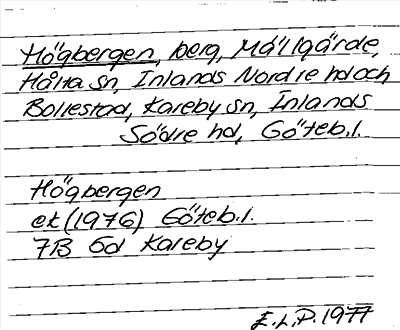 Högbergen, berg, Mällgärde,
Hålta sn, Inlands Nordre hd och
Bollestad, Kareby sn, Inlands
Södre hd, Göteb.l.
Högbergen
ek (1976) Göteb.l.
7B 6d Kareby
E.L.P. 1977